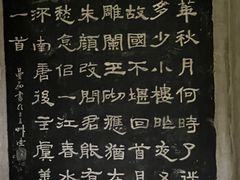 華秋月何時了
多少小樓昨夜又
故國不堪回首
雕闌玉砌應猶在
朱顏改問君能
愁恰佀一江春水
南唐後主虞美
一首